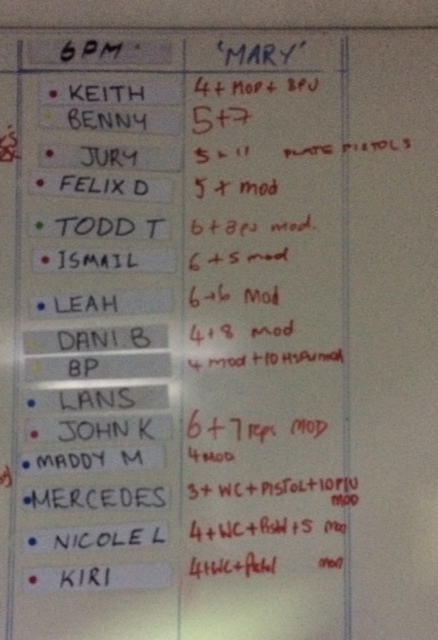 6PM 'MARY'
KEITH 4 + MOD + 8PU
BENNY 5+7
JURY 5 + 11 PLATE PISTOLS
FELIX D 5 + mod
TODD T 6 + 3pu mod.
ISMAIL 6 + 5 mod
LEAH 6+6 MOD
DANI B 4+8 mod
BP 4 mod + 10 HSPU mod
LANS
JOHN K 6+7 reps MOD
MADDY M 4 MOD
MERCEDES 3 + WC + PISTOL + 10 P/U
MOD
NICOLE L 4 + WC + Pistol + 5 mod
KIRI 4+WC+Pistol mod